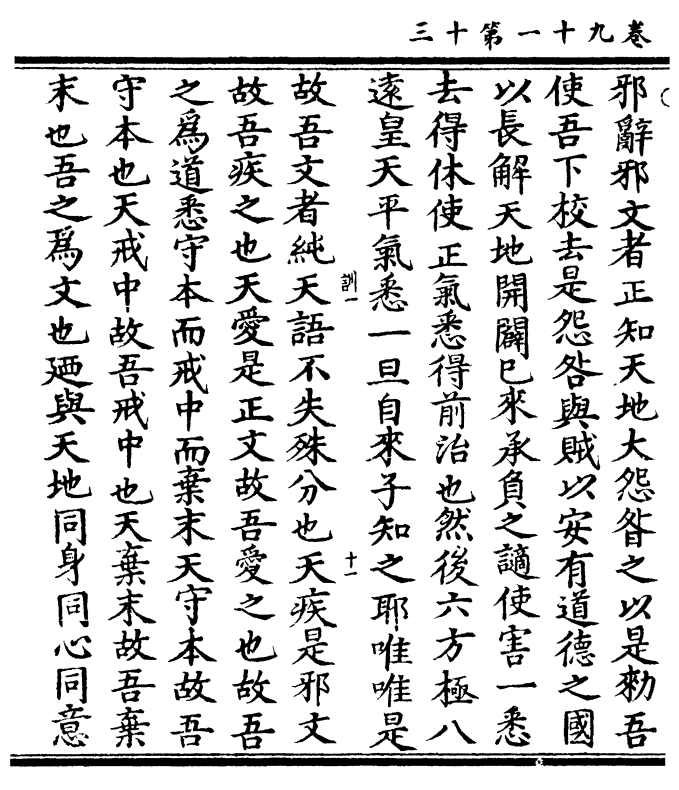 卷九十一第十三
邪辭邪文者正知天地大怨咎之以是勑吾
使吾下校去是怨咎與賊以安有道德之國
以長解天地開闢已來承負之讁使害一悉
去得休使正氣悉得前治也然後六方極八
遠皇天平氣悉一旦自來子知之耶唯唯是
訓一
十一
故吾文者純天語不失殊分也天疾是邪文
故吾疾之也天愛是正文故吾愛之也故吾
之爲道悉守本而戒中而棄末天守本故吾
守本也天戒中故吾戒中也天棄末故吾棄
末也吾之爲文也廼與天地同身同心同意